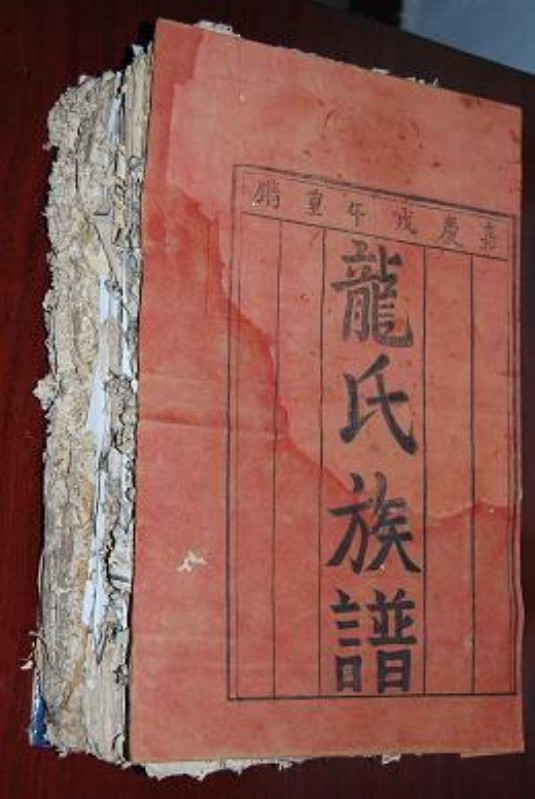 嘉慶戊午重鐫
龍氏族譜